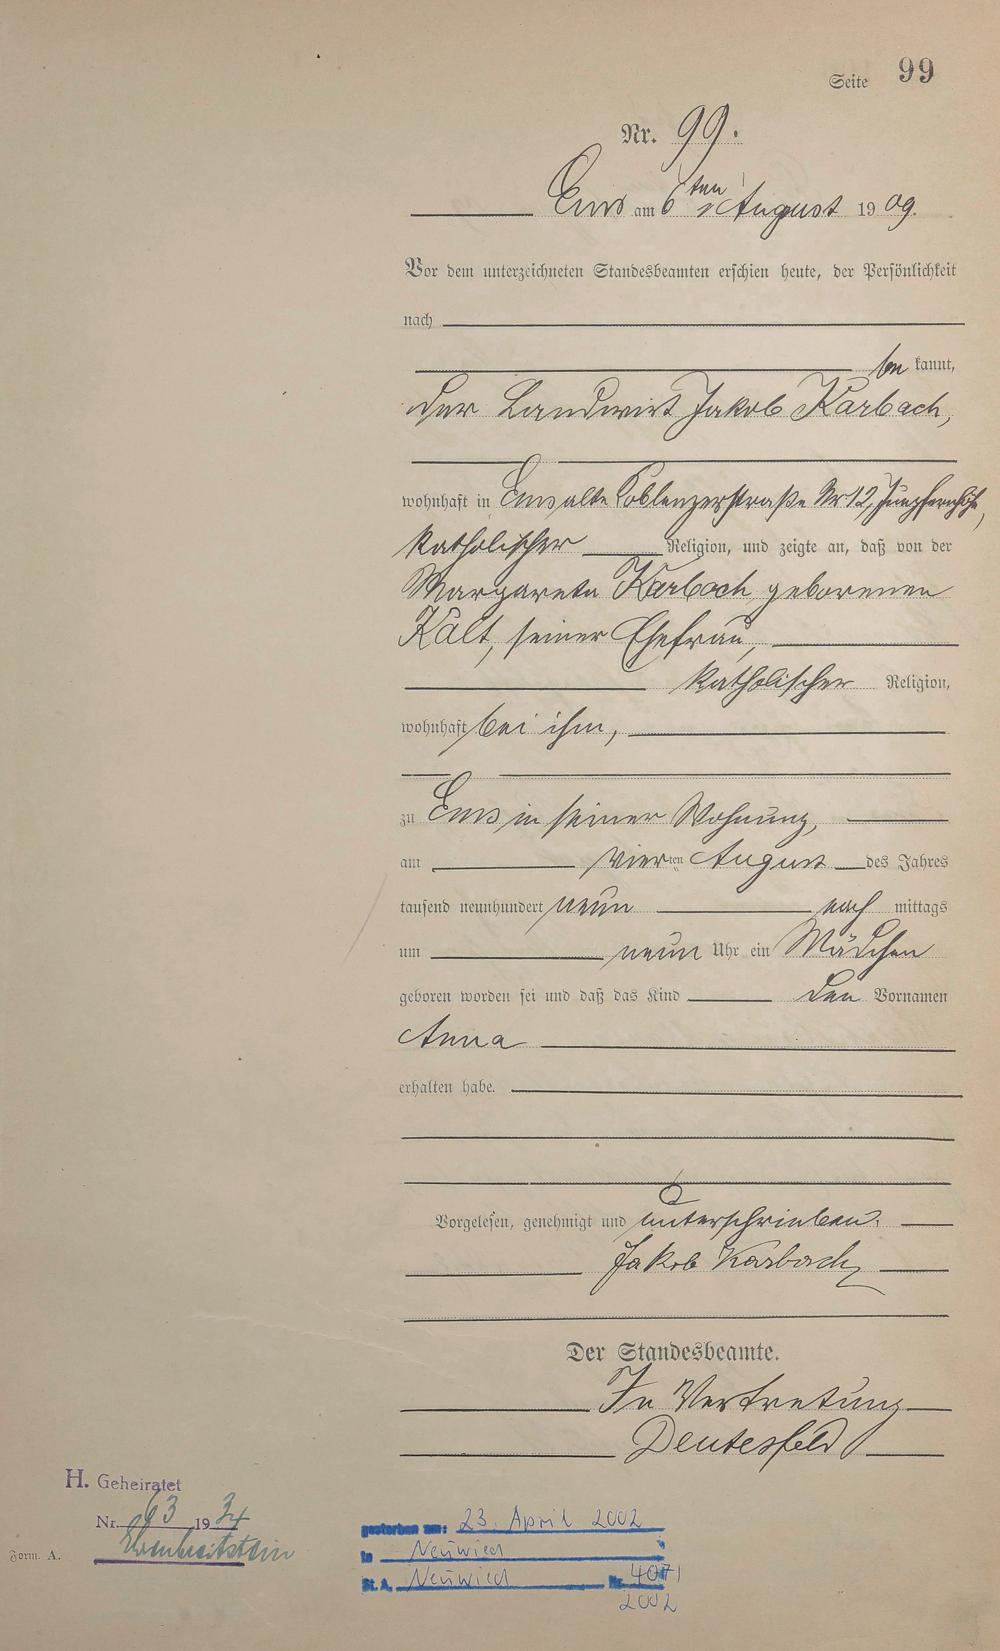 Seite 99
Nr. 99.
Ems am 6ten August 1909.
Vor dem unterzeichneten Standesbeamten erschien heute, der Persönlichkeit
nach
be kannt,
der Landwirt Jakob Karbach,
wohnhaft in Ems alte Coblenzerstraße Nr 12, Jungfernhöhe,
katholischer Religion, und zeigte an, daß von der
Margareta Karbach geborenen
Kalt, seiner Ehefrau,
katholischer Religion,
wohnhaft bei ihm,
zu Ems in seiner Wohnung,
am vierten August des Jahres
tausend neunhundert neun nach mittags
um neun Uhr ein Mädchen
geboren worden sei und daß das Kind den Vornamen
Anna
erhalten habe.
Vorgelesen, genehmigt und unterschrieben.
Jakob Karbach
Der Standesbeamte.
In Vertretung
Deutesfeld
H. Geheiratet
Nr. 63 1934
Ehrenbreitstein
Form. A.
gestorben am: 23. April 2002
in Neuwied
St. A. Neuwied Nr. 4071
2002